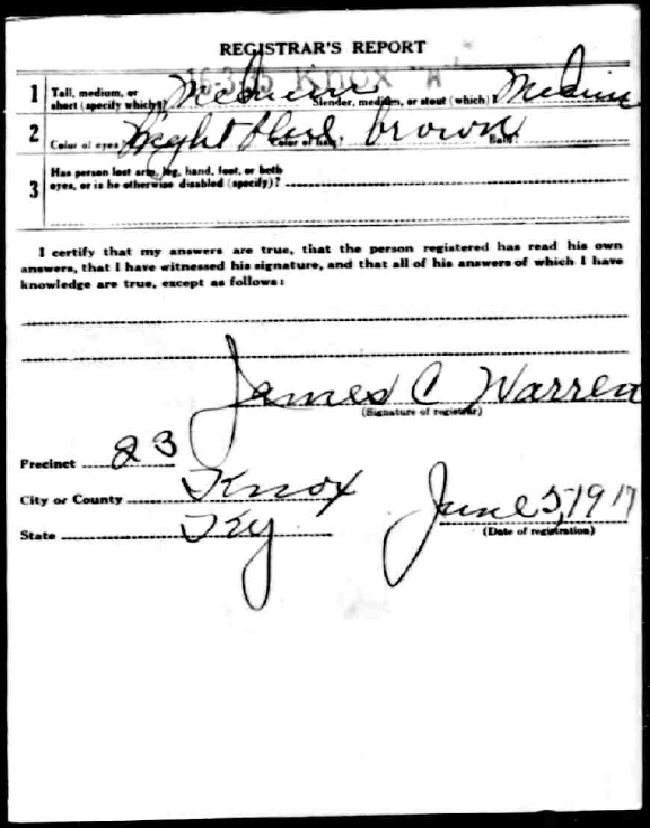 REGISTRAR'S REPORT
KNOX "A"
1 Tall, medium, or short (specify which)? Medium Slender, medium, or stout (which)? Medium
2 Color of eyes? Light blue Color of hair? brown Bald?
3 Has person lost arm, leg, hand, foot, or both
eyes, or is he otherwise disabled (specify)?
I certify that my answers are true, that the person registered has read his own
answers, that I have witnessed his signature, and that all of his answers of which I have
knowledge are true, except as follows:
James C Warren
(Signature of registrar)
Precinct 23
City or County Knox
State Ky
June 5, 1917
(Date of registration)